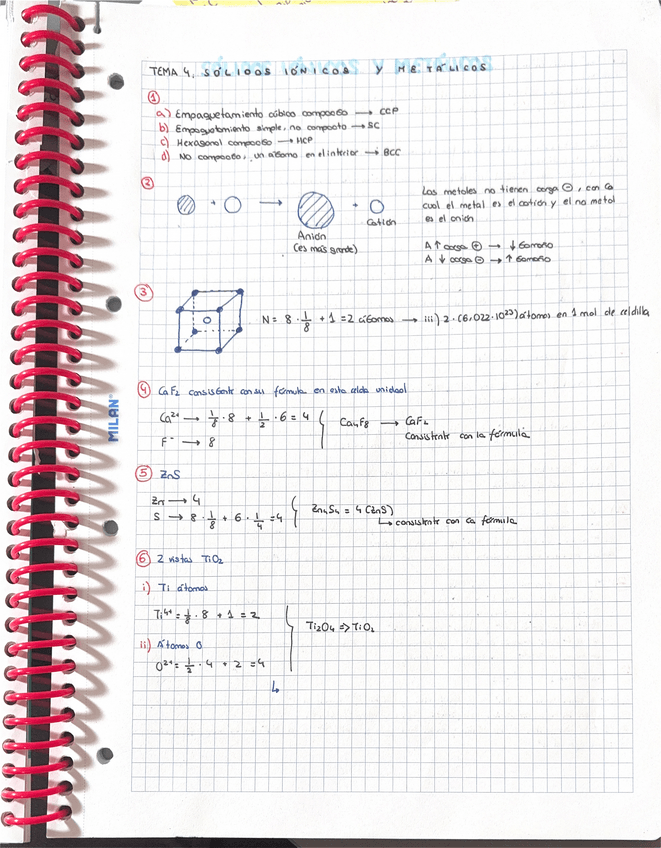 TEMA 4. SÓLIDOS IÓNICOS Y METÁLICOS
①
a) Empaquetamiento cúbico compacto → CCP
b) Empaquetamiento simple, no compacto → SC
c) Hexagonal compacto → HCP
d) No compacto, un átomo en el interior → BCC
②
+ → +
Catión
Anión
(es más grande)
Los metales no tienen carga ⊖, con lo
cual el metal es el catión y el no metal
es el anión
A ↑ carga ⊕ → ↓ tamaño
A ↓ carga ⊖ → ↑ tamaño
③
N = 8 · 1/8 + 1 = 2 átomos → iii) 2 · (6,022 · 10²³) átomos en 1 mol de celdilla
④ CaF₂ consistente con su fórmula en esta celda unidad
Ca²⁺ → 1/8 · 8 + 1/2 · 6 = 4
F⁻ → 8
Ca₄F₈ → CaF₂
Consistente con la fórmula
MILAN®
⑤ ZnS
Zn → 4
S → 8 · 1/8 + 6 · 1/4 = 4
Zn₄S₄ = 4 (ZnS)
↳ consistente con la fórmula
⑥ 2 vistas TiO₂
i) Ti átomos
Ti⁴⁺ = 1/8 · 8 + 1 = 2
ii) Átomos O
O²⁺ = 1/2 · 4 + 2 = 4
Ti₂O₄ => TiO₂
↳